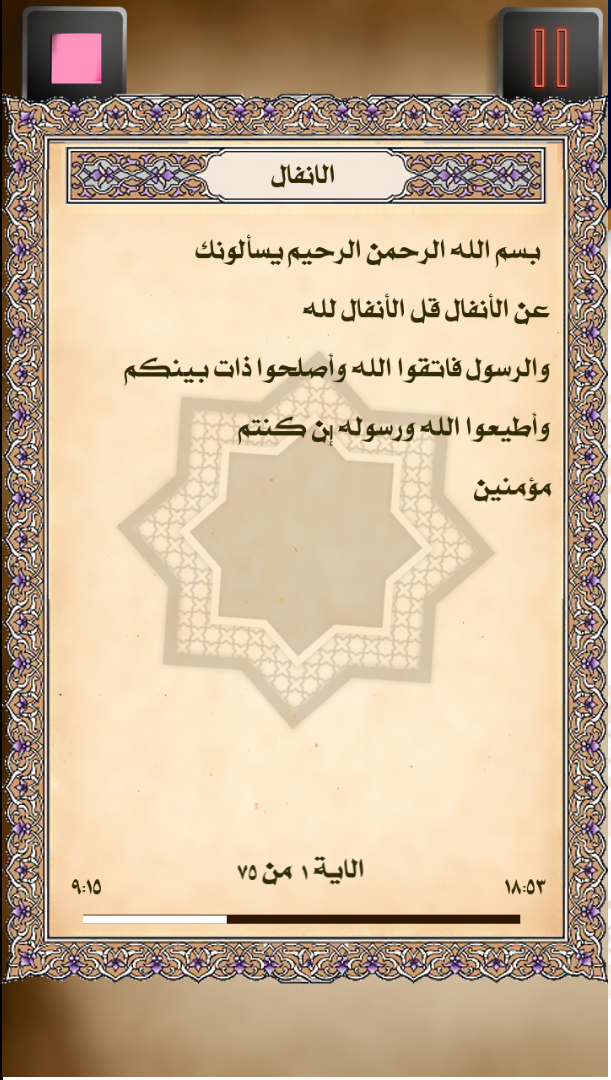 الانفال
بسم الله الرحمن الرحيم يسألونك
عن الأنفال قل الأنفال لله
والرسول فاتقوا الله وأصلحوا ذات بينكم
وأطيعوا الله ورسوله إن كنتم
مؤمنين
الاية ١ من ٧٥
١٨:٥٣
٩:١٥